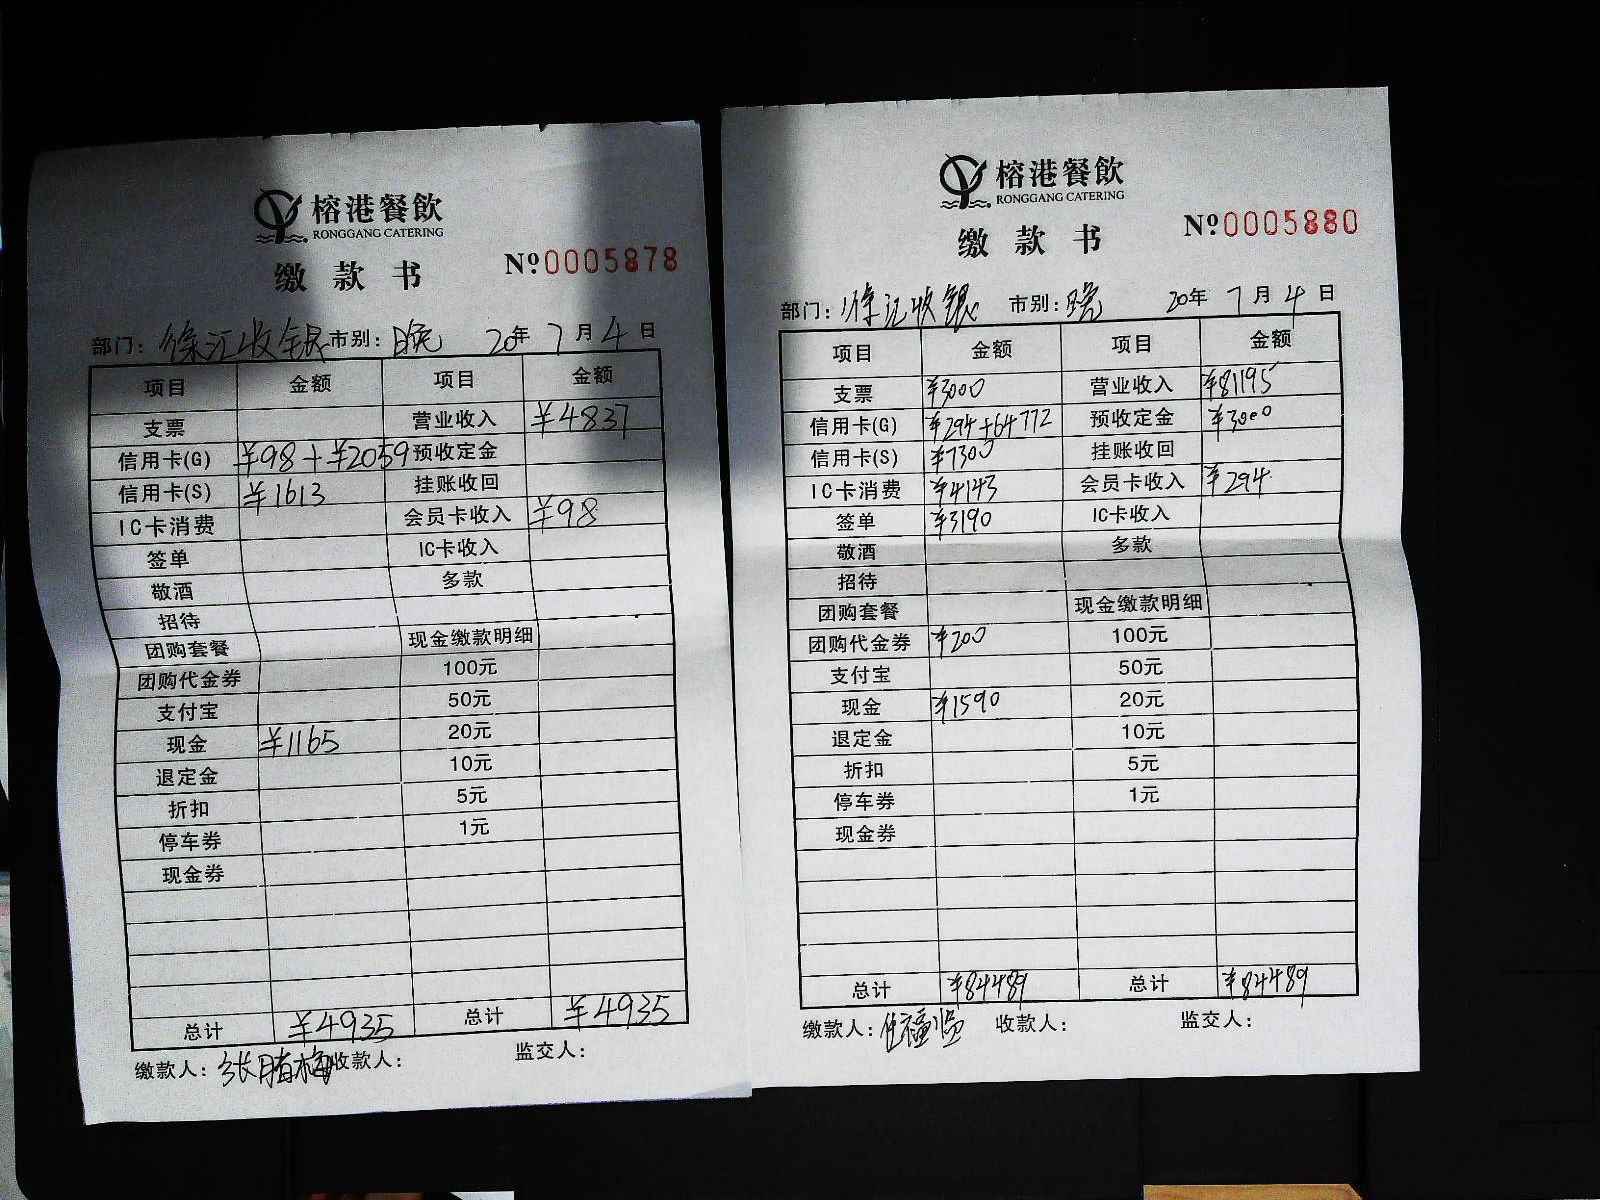 榕港餐飲
RONGGANG CATERING
缴款书
Nº0005878
部门:徐汇收银 市别:晚 20年7月4日
项目 金额 项目 金额
支票 营业收入 ¥4837
信用卡(G) ¥98+¥2059 预收定金
信用卡(S) ¥1613 挂账收回
IC卡消费 会员卡收入 ¥98
签单 IC卡收入
敬酒 多款
招待
团购套餐 现金缴款明细
团购代金券 100元
支付宝 50元
现金 ¥1165 20元
退定金 10元
折扣 5元
停车券 1元
现金券
总计 ¥4935 总计 ¥4935
缴款人:张腊梅 收款人: 监交人:
榕港餐飲
RONGGANG CATERING
缴款书
Nº0005880
部门:徐汇收银 市别:晚 20年7月4日
项目 金额 项目 金额
支票 ¥3000 营业收入 ¥81195
信用卡(G) ¥294+64772 预收定金 ¥3000
信用卡(S) ¥7300 挂账收回
IC卡消费 ¥4143 会员卡收入 ¥294
签单 ¥3190 IC卡收入
敬酒 多款
招待
团购套餐 现金缴款明细
团购代金券 ¥200 100元
支付宝 50元
现金 ¥1590 20元
退定金 10元
折扣 5元
停车券 1元
现金券
总计 ¥84489 总计 ¥84489
缴款人: 收款人: 监交人: